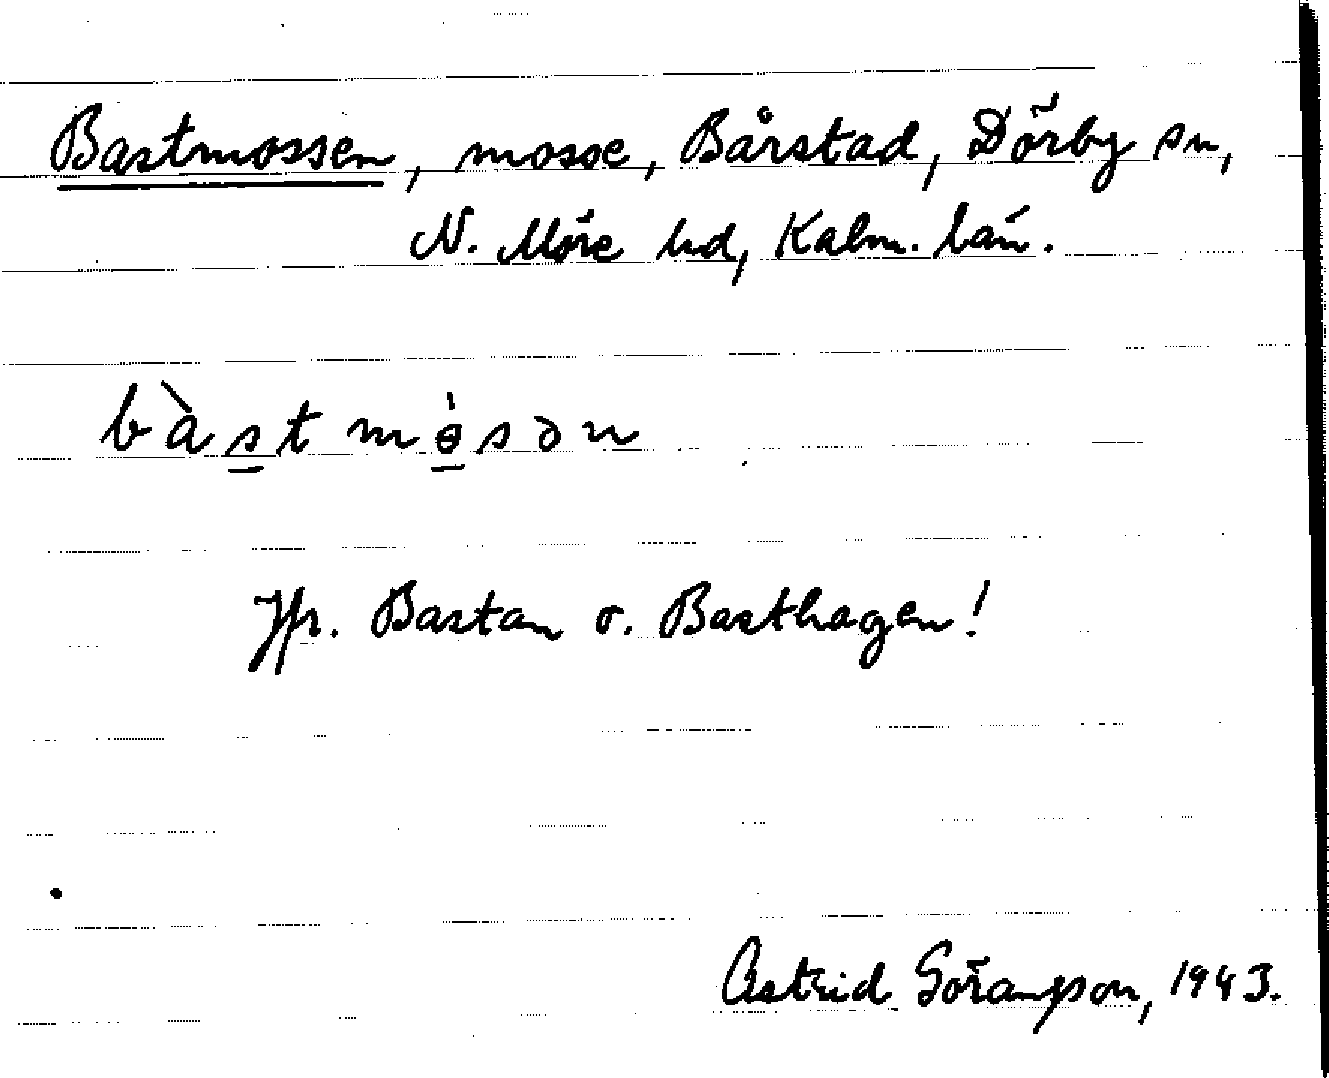 Bastmossen, mosse, Bårstad, Dörby sn,
N. Möre hd, Kalm. län.
bàs̱tmɵ̱̀sən
Jfr. Bastan o. Basthagen!
Astrid Göransson, 1943.